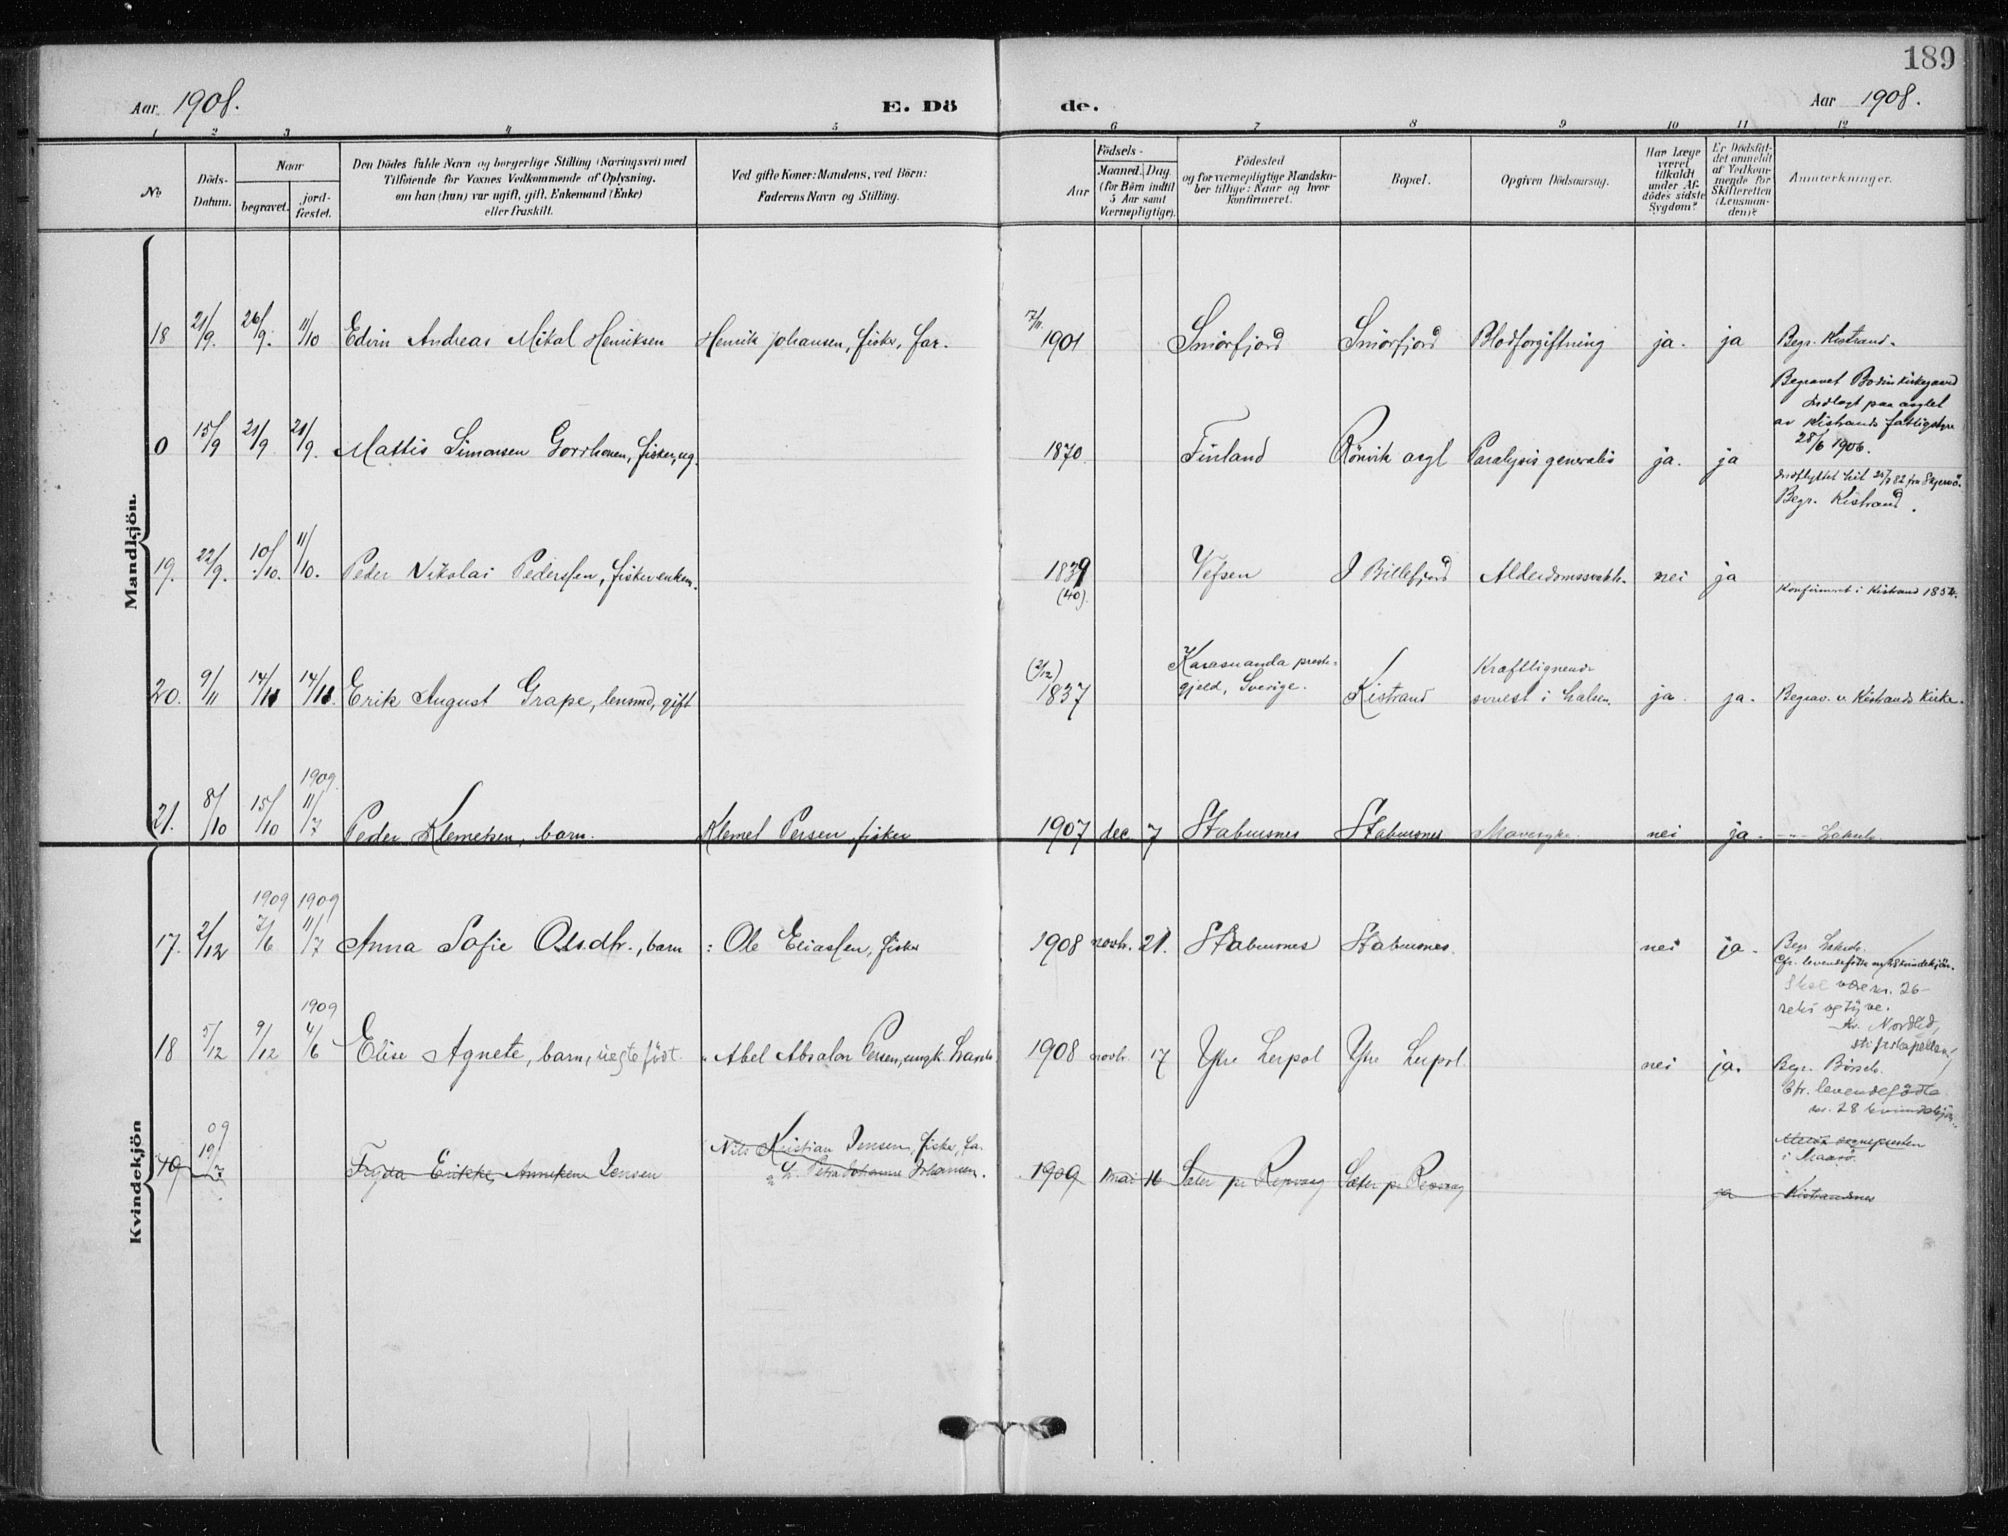 189
Aar 1908. E. Dö de. Aar 1908.
1 2 3 4 5 6 7 8 9 10 11 12
No. Döds-Datum. Naar begravet. jordfæstet. Den Dödes fulde Navn og borgerlige Stilling (Næringsvei) med Tilföiende for Voxnes Vedkommende af Oplysning, om han (hun) var ugift, gift, Enkemand (Enke) eller fraskilt. Ved gifte Koner: Mandens, ved Börn: Faderens Navn og Stilling. Födsels- Aar Maaned. Dag. (for Börn indtil 5 Aar samt Værnepligtige). Födested og for værnepligtige Mandskaber tillige: Naar og hvor konfirmeret. Bopæl. Opgiven Dödsaarsag. Har Læge været tilkaldt under Afdödes sidste Sygdom? Er Dödsfaldet anmeldt af Vedkommende for Skifteretten (Lensmanden)? Anmerkninger.
Mandkjön.
18 21/9. 26/9. 11/10 Edvin Andreas Mikal Henriksen Henrik Johansen, fisker, far. 7/11. 1901 Smörfjord Smörfjord Blodforgiftning ja. ja Begr. Kistrand.
0 15/9 21/9 21/9. Mattis Simonsen Gorrhonen, fisker, ug. 1870 Finland Rönvik asyl Paralysis generalis ja. ja Begravet Bodin kirkegaard
Indlagt paa asylet
av Kistrands fattigstyre
28/6 1906.
19. 22/9. 10/10. 11/10. Peder Nikolai Pederssen, fisker enkem. 1839 (40). Vefsen I Billefjord Alderdomssvakh. nei ja Begr. Kistrand.
Konfirmeret i Kistrand 1854.
20. 9/11 14/11 14/11. Erik August Grape, lensmd, gift (21/12) 1837 Karasuanda prestegjeld, Sverige. Kistrand Kræftlignende svulst i halsen. ja. ja. Begrav. v. Kistrands Kirke.
21. 8/10 15/10 1909 11/7 Peder Klemetsen, barn. Klemet Persen, fisker 1907 dec. 7 Stabursnes Stabursnes nei ja. -"- Lakselv.
Kvindekjön
17. 2/12 1909 7/6 1909 11/7 Anna Sofie Ols.dtr., barn : Ole Eliassen, fisker 1908 novbr. 21. Stabursnes Stabursnes. nei ja. Begr. Lakselv.
Skal være nr. 26-
seks og tyve.
Av. Nordlid,
18 5/12 9/12 1909 4/6 Elise Agnete, barn, uegte födt. Abel Absalon Persen, ungk. 1908 novbr. 17 Ytre Leirpol Ytre Leirpol. nei ja. Begr. Börselv.
Cfr. levendefödte
nr. 28 kvindekjön.
19 09 19/7 Frida Erikke Anneken Jensen Nils Kristian Jensen, fisker, far
Petra Johanna Johansen. 1909 mai 16 Sæter pr Repvaag Sæter pr Repvaag ja sognepresten
i Maasö.
Kistrandnes